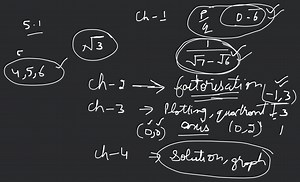 5.1
5
4,5,6
√3
Ch-1 P/q 0.6
1/(√7-√6)
Ch-2 → factorisation (-1,3)
Ch-3 → Plotting, quadrant
(0,0) axis (0,2) 1
Ch-4 → Solution, graph